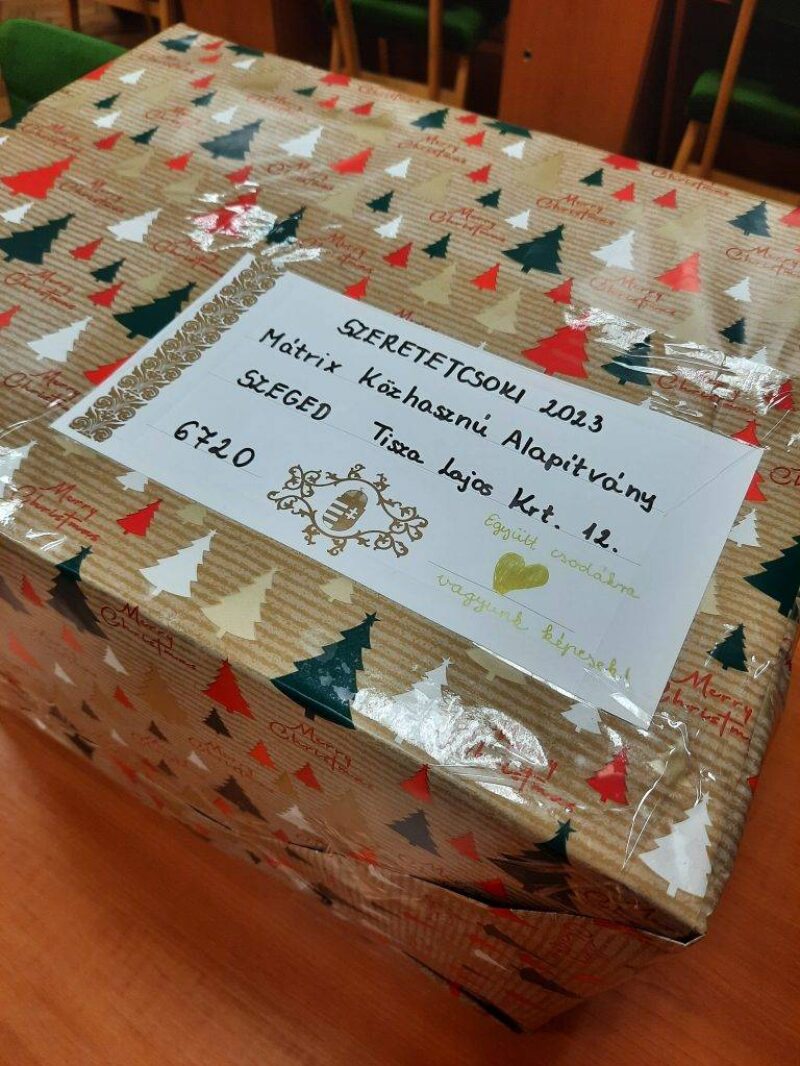 SZERETETCSOKI 2023
Mátrix Közhasznú Alapítvány
SZEGED Tisza Lajos Krt. 12.
6720
Együtt csodákra
vagyunk képesek!
Merry Christmas